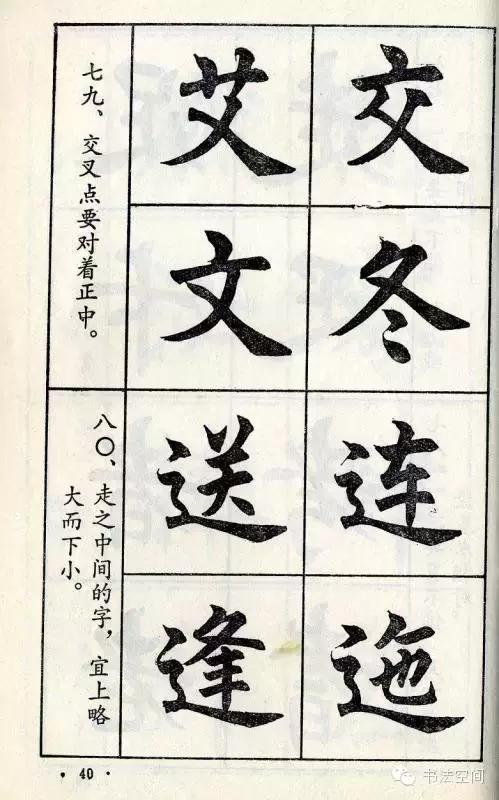 交
冬
艾
文
七九、交叉点要对着正中。
连
迤
送
逢
八〇、走之中间的字，宜上略
大而下小。
• 40 •
书法空间